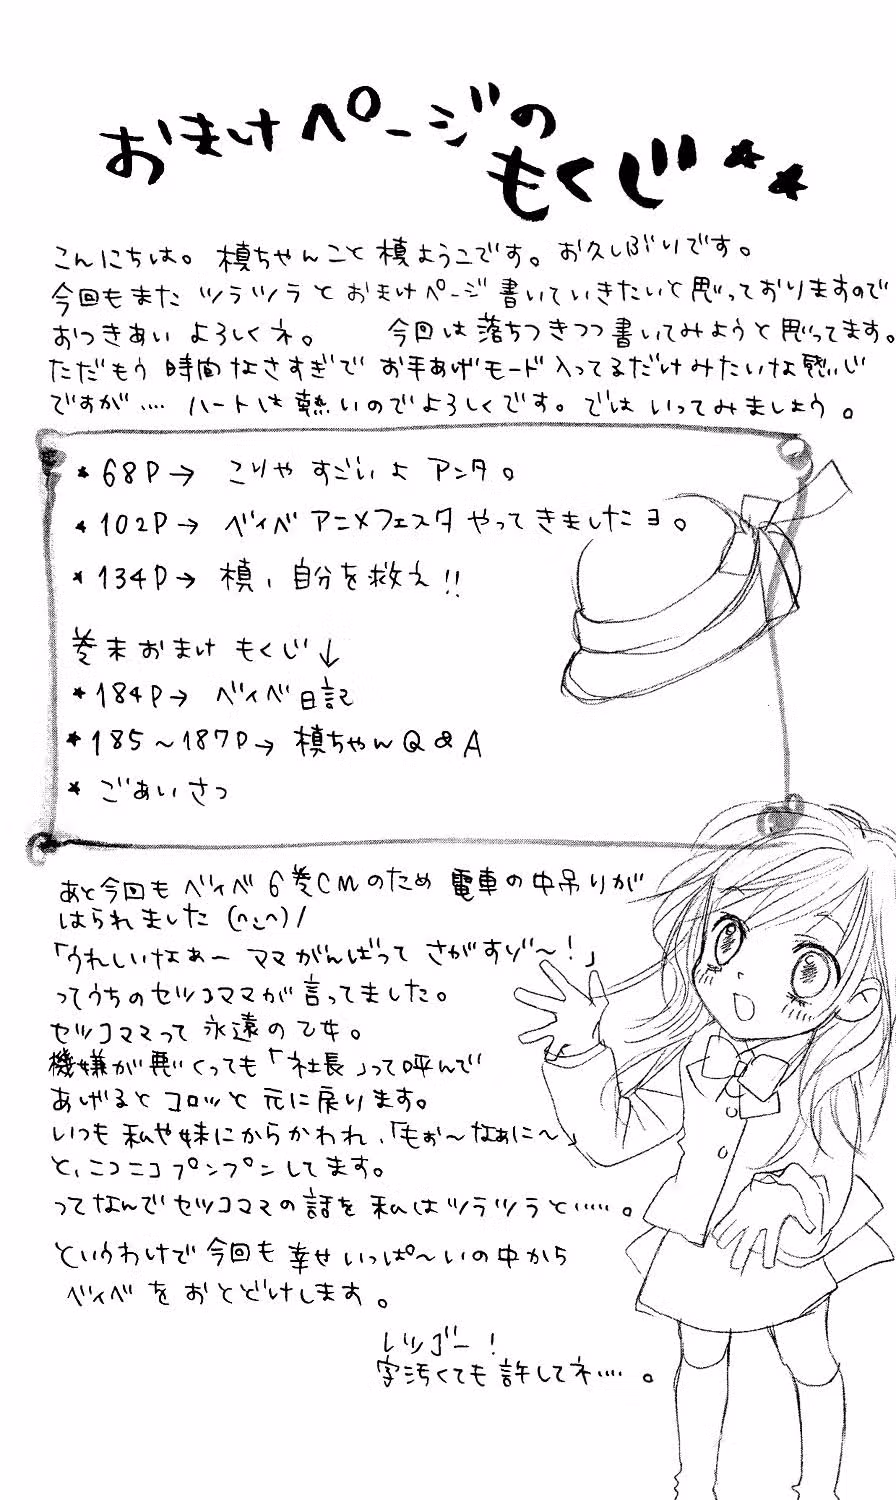 おまけページの
もくじ★★
こんにちは。槙ちゃんこと槙ようこです。お久しぶりです。
今回もまたツラツラとおまけページ書いていきたいと思っておりますので
おつきあいよろしくネ。 今回は落ちつきつつ書いてみようと思ってます。
ただもう時間なさすぎでお手あげモード入ってるだけみたいな感じ
ですが…. ハートは熱いのでよろしくです。ではいってみましょう。
★68P→ こりゃすごいよアンタ。
★102P→ ベイベアニメフェスタやってきましたヨ。
★134P→ 槙、自分を救え!!
巻末おまけもくじ↓
★184P→ ベイベ日記
★185～187P→ 槙ちゃんQ&A
★ごあいさつ
あと今回もベイベ6巻CMのため電車の中吊りが
はられました(∩ﾆ∩)/
「うれしいなぁ〜ママがんばってさがすゾ〜!」
ってうちのセツコママが言ってました。
セツコママって永遠の乙女。
機嫌が悪くっても「社長」って呼んで
あげるとコロッと元に戻ります。
いつも私や妹にからかわれ、「もぉ〜なぁに〜」
と、ニコニコプンプンしてます。
ってなんでセツコママの話を私はツラツラと…..。
というわけで今回も幸せいっぱ〜いの中から
ベイベをおとどけします。
レッゴー!
字汚くても許してネ….。